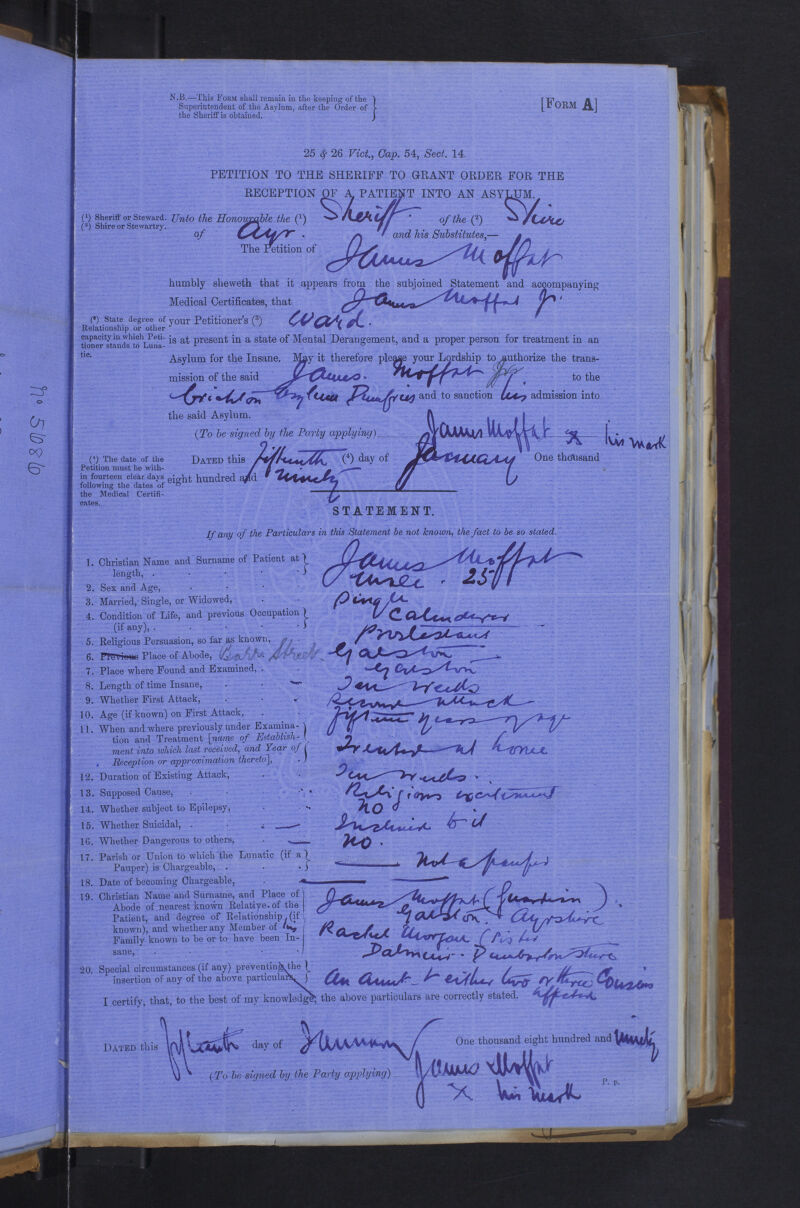 N.B.—This Form shall remain in the keeping of the
Superintendent of the Asylum, after the Order of
the Sheriff is obtained.
[Form A]
25 & 26 Vict., Cap. 54, Sect. 14.
PETITION TO THE SHERIFF TO GRANT ORDER FOR THE
RECEPTION OF A PATIENT INTO AN ASYLUM.
(¹) Sheriff or Steward.
(²) Shire or Stewartry.
Unto the Honourable the (¹) Sheriff of the (²) Shire
of Ayr. and his Substitutes,—
The Petition of James Moffat
humbly sheweth that it appears from the subjoined Statement and accompanying
Medical Certificates, that James Moffat Jr.
(³) State degree of
Relationship or other
capacity in which Peti-
tioner stands to Luna-
tic.
your Petitioner's (³) Ward.
is at present in a state of Mental Derangement, and a proper person for treatment in an
Asylum for the Insane. May it therefore please your Lordship to authorize the trans-
mission of the said James Moffat Jr to the
Crichton Asylum Dumfries and to sanction his admission into
the said Asylum.
(To be signed by the Party applying) James Moffat x his mark
(⁴) The date of the
Petition must be with-
in fourteen clear days
following the dates of
the Medical Certifi-
cates.
Dated this fifteenth (⁴) day of January One thousand
eight hundred and ninety
STATEMENT.
If any of the Particulars in this Statement be not known, the fact to be so stated.
1. Christian Name and Surname of Patient at
length, James Moffat
2. Sex and Age, Male. 25
3. Married, Single, or Widowed, Single
4. Condition of Life, and previous Occupation
(if any), Calenderer
5. Religious Persuasion, so far as known, Protestant
6. Previous Place of Abode, Barr Street Galston
7. Place where Found and Examined, Galston
8. Length of time Insane, Ten weeks
9. Whether First Attack, Second attack
10. Age (if known) on First Attack, fifteen years of age
11. When and where previously under Examina-
tion and Treatment [name of Establish-
ment into which last received, and Year of
Reception or approximation thereto], Treated at home
12. Duration of Existing Attack, Ten weeks.
13. Supposed Cause, Religious excitement
14. Whether subject to Epilepsy, no
15. Whether Suicidal, Inclined to it
16. Whether Dangerous to others, no.
17. Parish or Union to which the Lunatic (if a
Pauper) is Chargeable, Not a pauper
18. Date of becoming Chargeable,
19. Christian Name and Surname, and Place of
Abode of nearest known Relative of the
Patient, and degree of Relationship (if
known), and whether any Member of his
Family known to be or to have been In-
sane,
James Moffat (Guardian).
Galston. Ayrshire
Rachel Morgan (Sister
Dalmuir. Dumbartonshire
20. Special circumstances (if any) preventing the
insertion of any of the above particulars,
An aunt & either two or three Cousins
affected
I certify, that, to the best of my knowledge, the above particulars are correctly stated.
Dated this fifteenth day of January One thousand eight hundred and ninety
(To be signed by the Party applying) James Moffat
x his mark
P. p.
No 5086